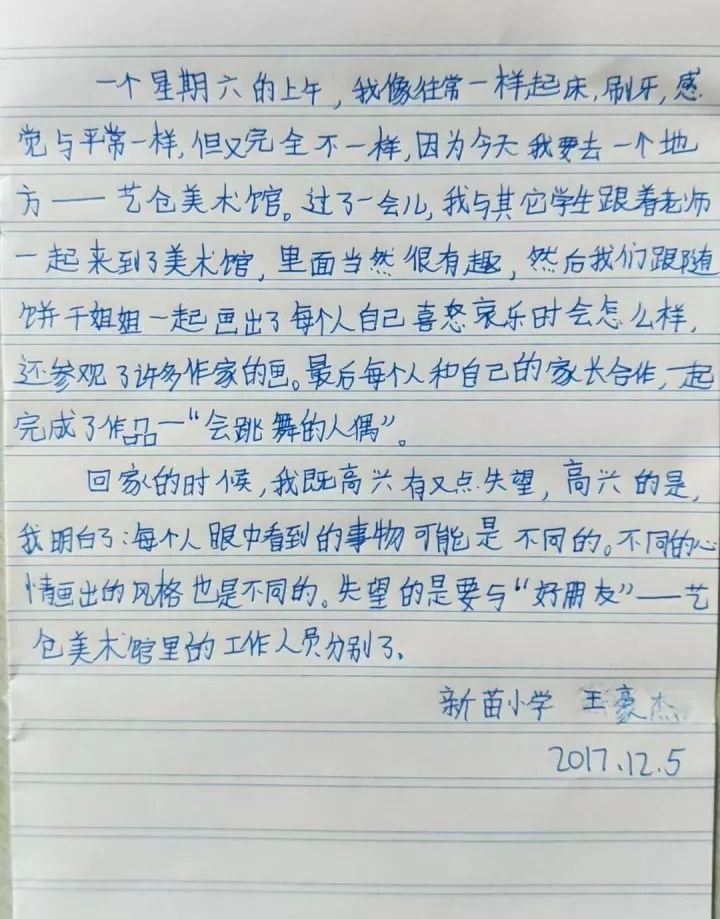 一个星期六的上午，我像往常一样起床，刷牙，感
觉与平常一样，但又完全不一样，因为今天我要去一个地
方——艺仓美术馆。过了一会儿，我与其它学生跟着老师
一起来到了美术馆，里面当然很有趣，然后我们跟随
饼干姐姐一起画出了每个人自己喜怒哀乐时会怎么样，
还参观了许多作家的画。最后每个人和自己的家长合作，一起
完成了作品—“会跳舞的人偶”。
回家的时候，我既高兴有又点失望，高兴的是，
我明白了：每个人眼中看到的事物可能是不同的。不同的心
情画出的风格也是不同的。失望的是要与“好朋友”——艺
仓美术馆里的工作人员分别了、
新苗小学 王豪杰
2017.12.5